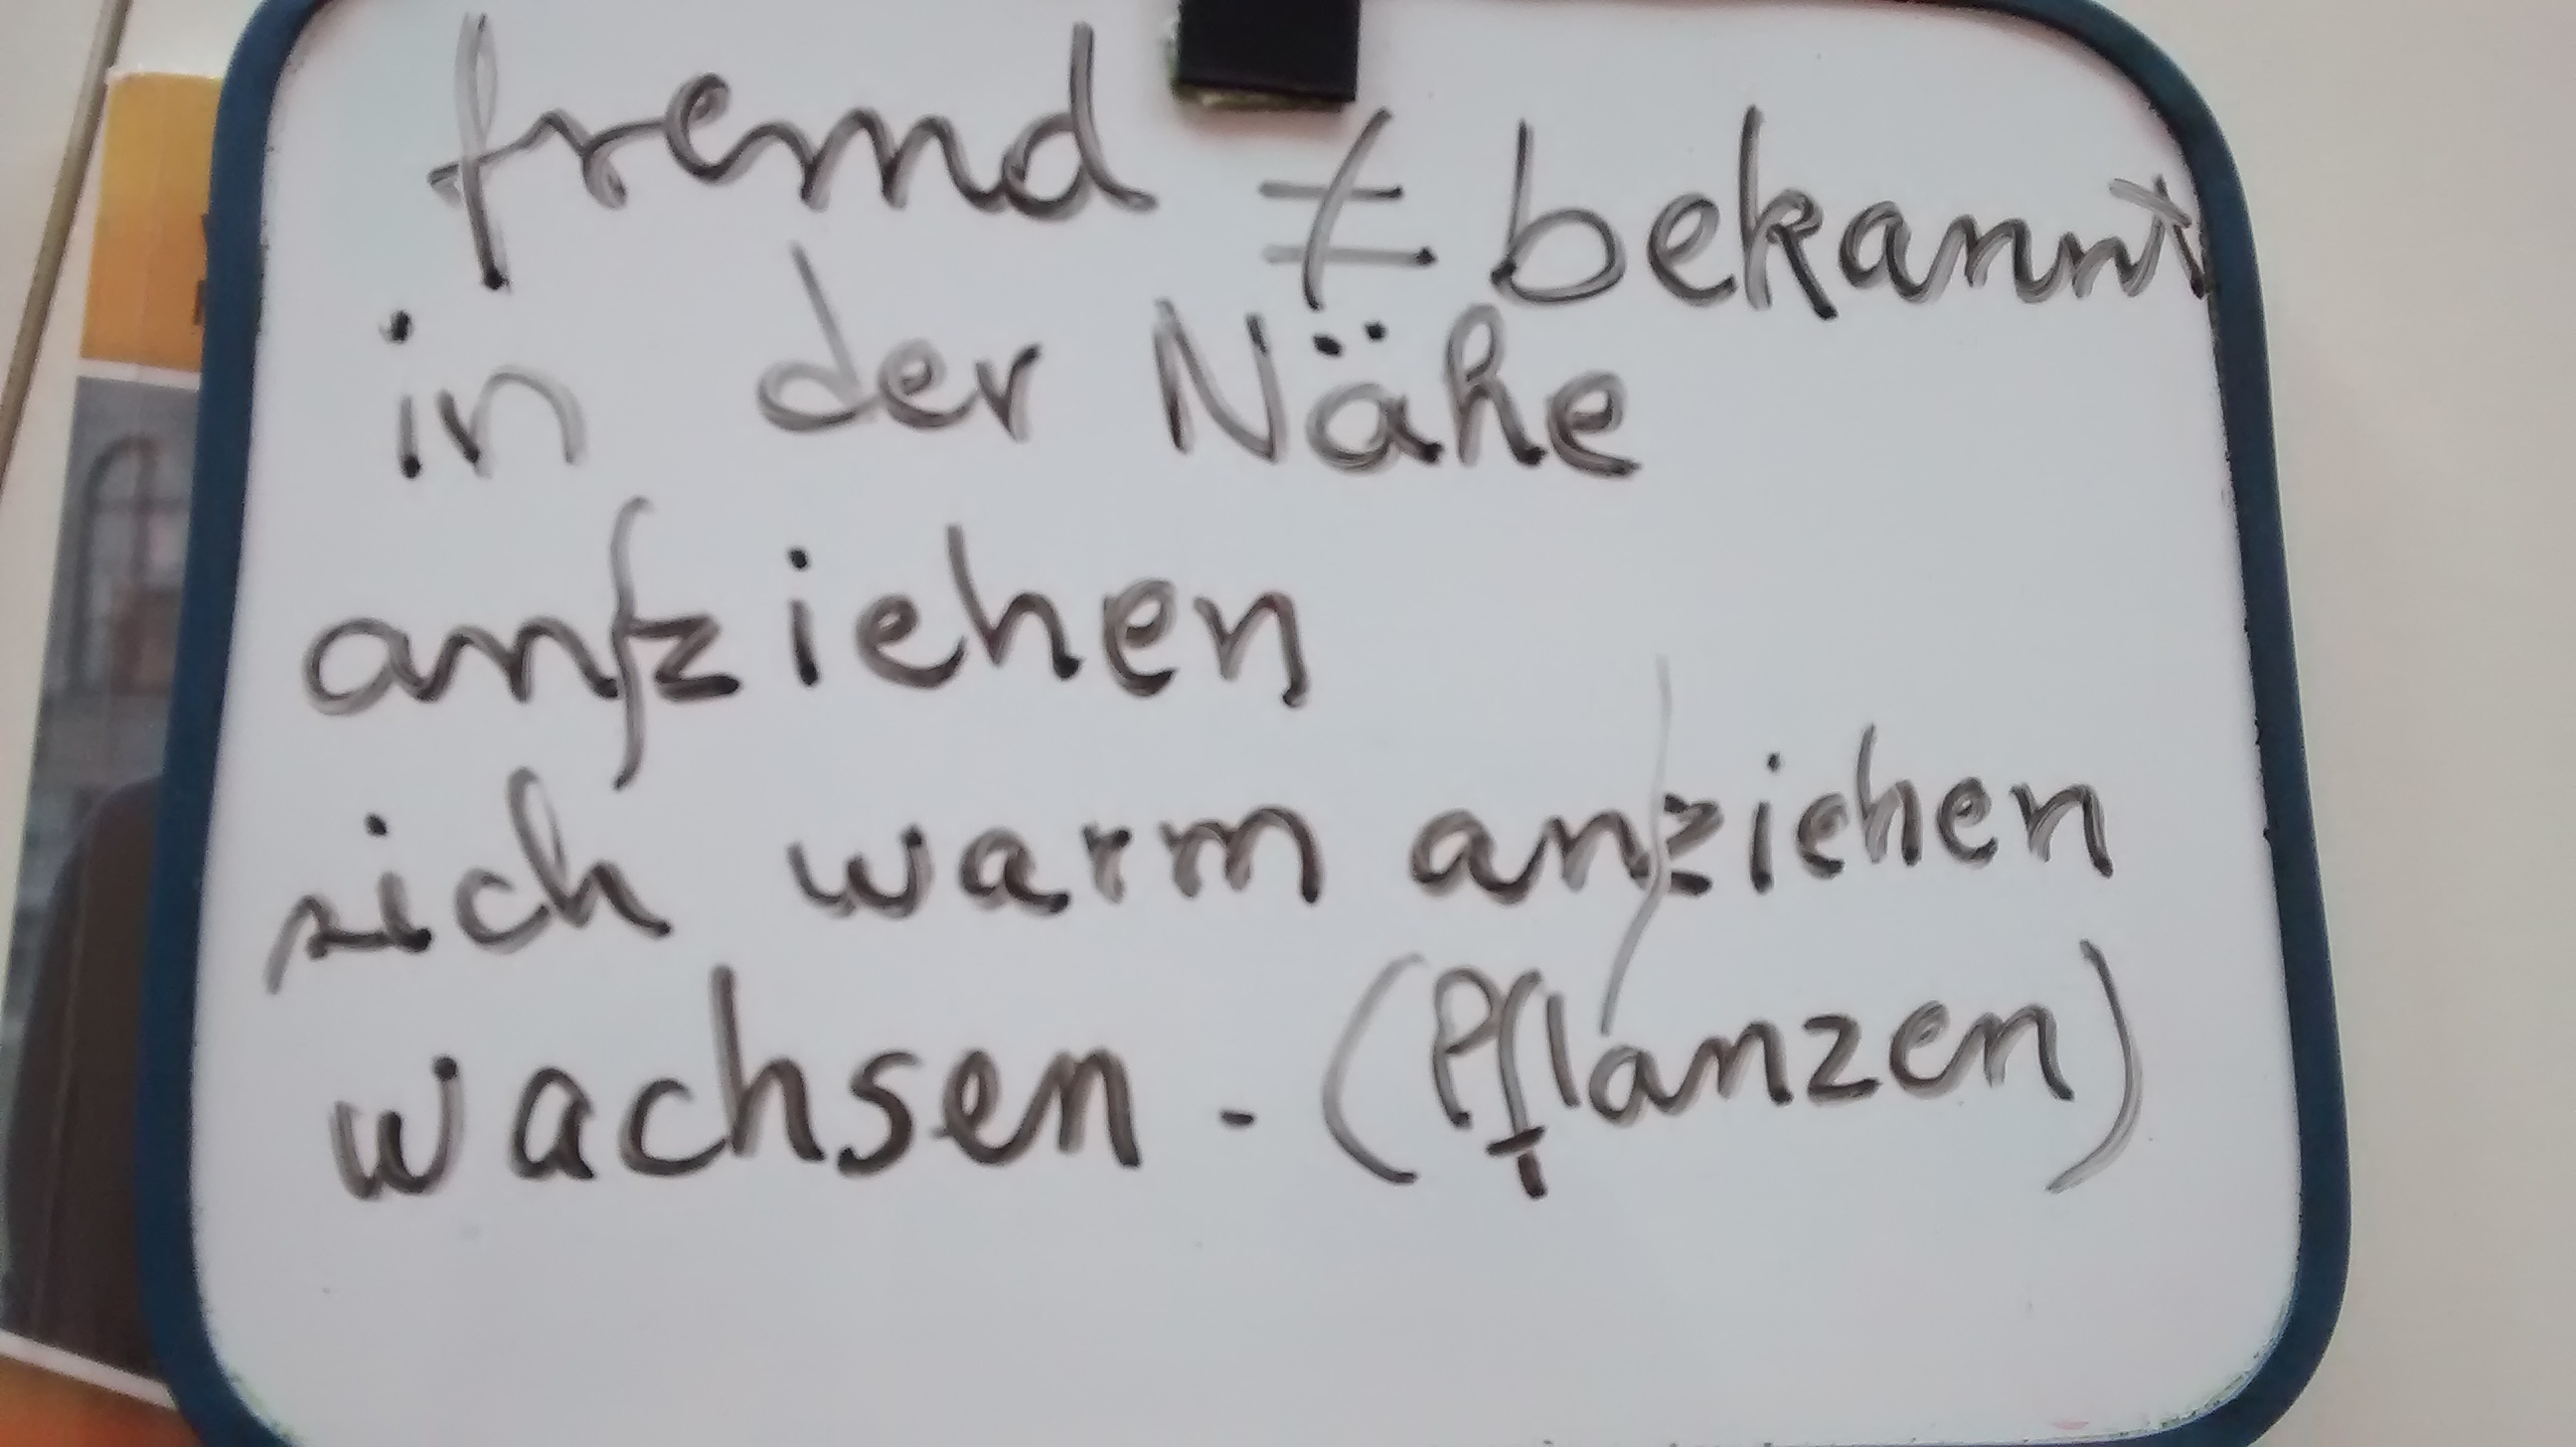 fremd ≠ bekannt
in der Nähe
an/ziehen
sich warm an/ziehen
wachsen - (Pflanzen)